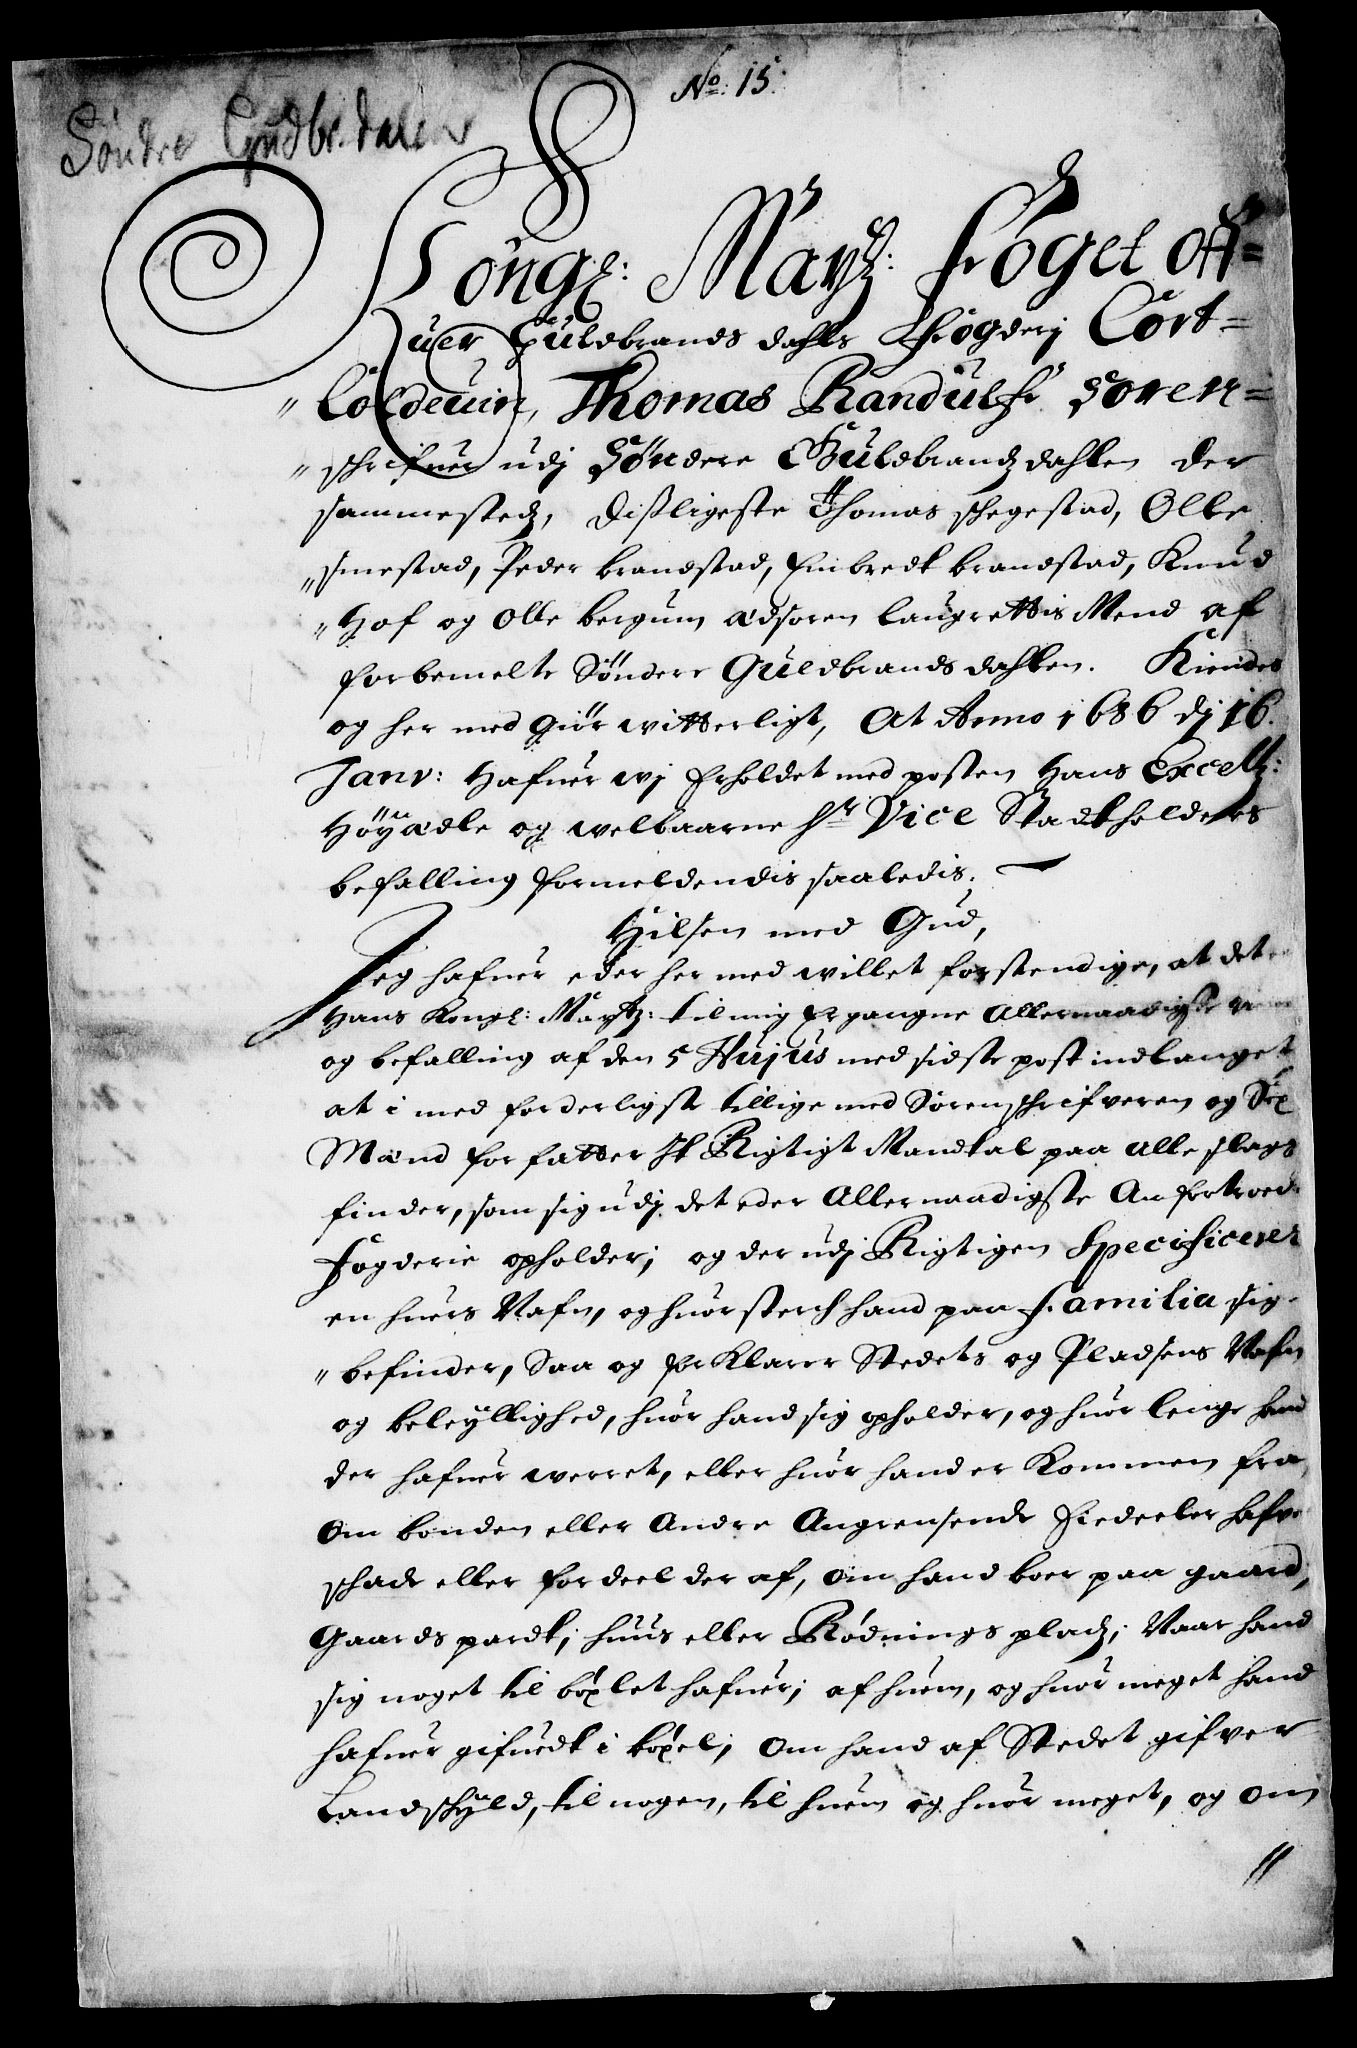 No: 15.
Söndre Gudbr. dalen
Kongl: Maytz: foget off=
uer Guldbrands dahls Fogderj Cort=
Coldeuin, Thomas Randulff Soren=
schrifuer udj Söndere Guldbrandz dahlen der
sammestedz, disligeste Thomas schegestad, Olle
smestad, Peder brandstad, Embredt brandstad, Knud
Hof og Olle bergum Edsoren laugrettis Mend af
forbemelte Söndere Guldbrands dahlen. Kiendes
og her med Giör witterligt, At Anno 1686 dj 16.
Janv: Hafuer wj Erholdet med posten Hans Excell:
Höyædle og welbaarne Hr Vice Stadtholders
befalling formeldendis saaledis.
Hilsen med Gud,
Jeg hafuer eder her med willet forstendige, at det er
Hans Kongl: Maytz: til mig Ergangne Allernaadigste
og befalling af den 5 Hujus med sidste post indlanget
at i med forderligst tillige med Sörenschrifveren og Sex
Mænd forfatter It Rigtigt Mandtal paa alle slags
finder, som sig udj det eder Allernaadigste Anfortroede
Fogderie opholder; og der udj Rigtigen Specificerer
en huers Nafn, og huor sterch hand paa Familia sig
befinder, Saa og forklarer Stedets og Pladsens Nafn
og beleyllighed, huor hand sig opholder, og huor lenge hand
der hafuer werret, eller huor hand er Kommen fra,
Om bonden eller Andre Angrensende Fiedeeler hafve
schade eller fordeel der af, om hand boer paa gaard,
Gaards pardt; huus eller Rödnings pladz; Naar hand
sig noget til böxlet hafuer; af huem, og huor meget hand
hafuer gifuedt i böxel; Om hand af Stedet gifver
Landschyld, til nogen, til huem og huor meget, og om